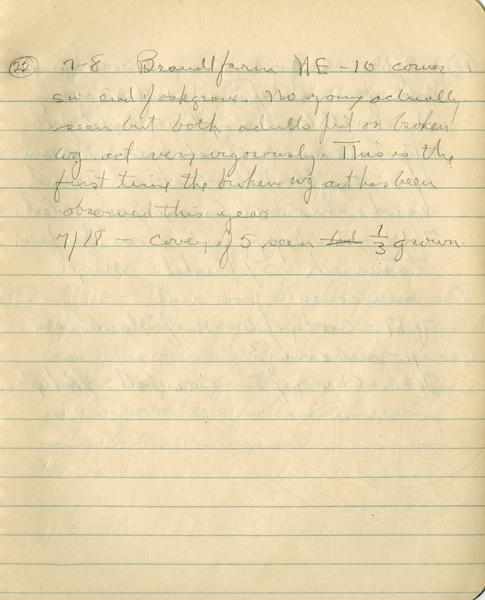 (22) 7-8 Brandt farm NE-10 corner
sw end of oakgrove. No young actually
seen but both adults put on broken
wg act very vigorously. This is the
first time the broken wg act has been
observed this year
7/18 - covey of 5 seen 1/3 grown.